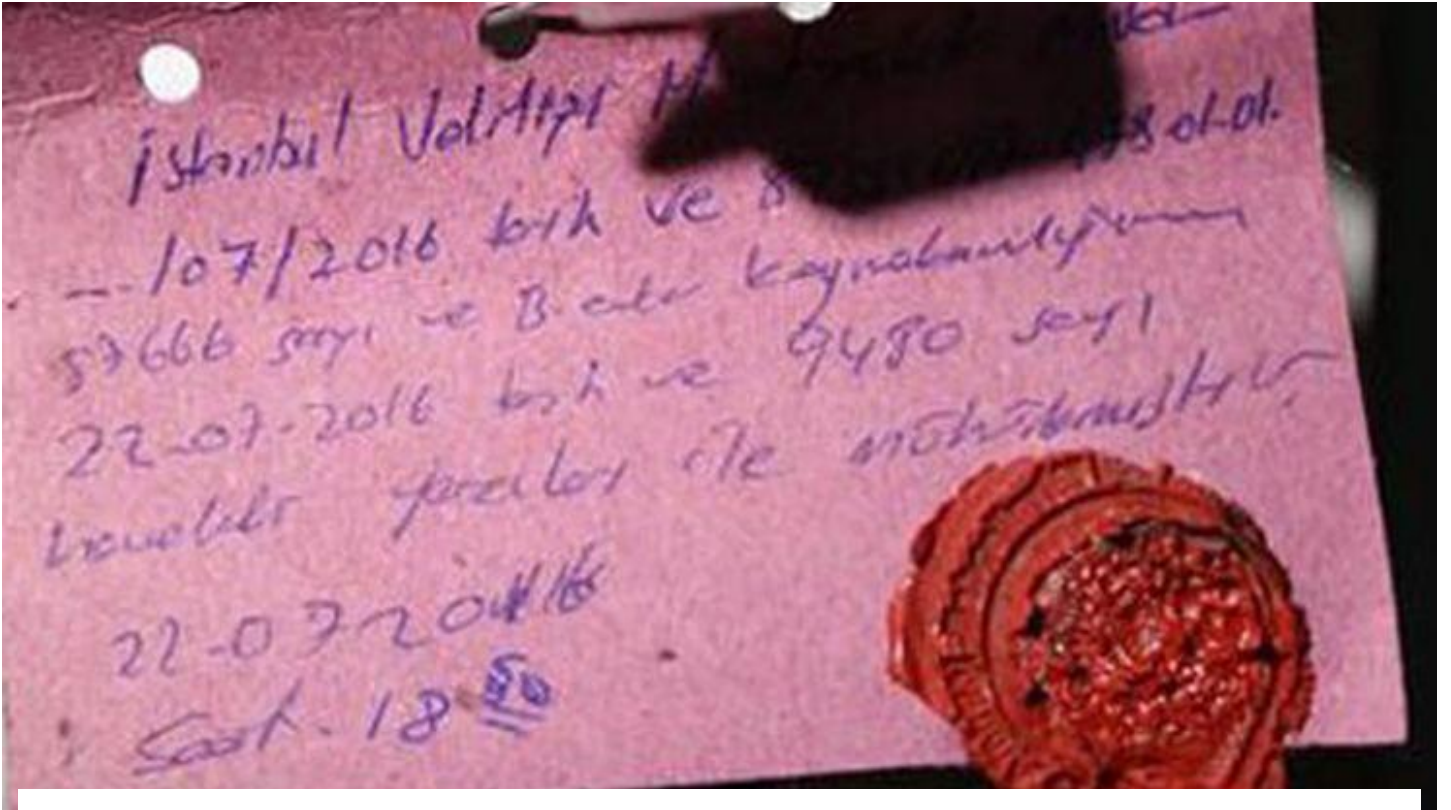 İstanbul Valiliği
/07/2016 tarih ve 8 01-01.
57666 sayı ve B. Kaymakamlığının
22-07-2016 tarih ve 9480 sayı
yazıları ile mühürlenmiştir
22-07-2016
Saat. 18 50